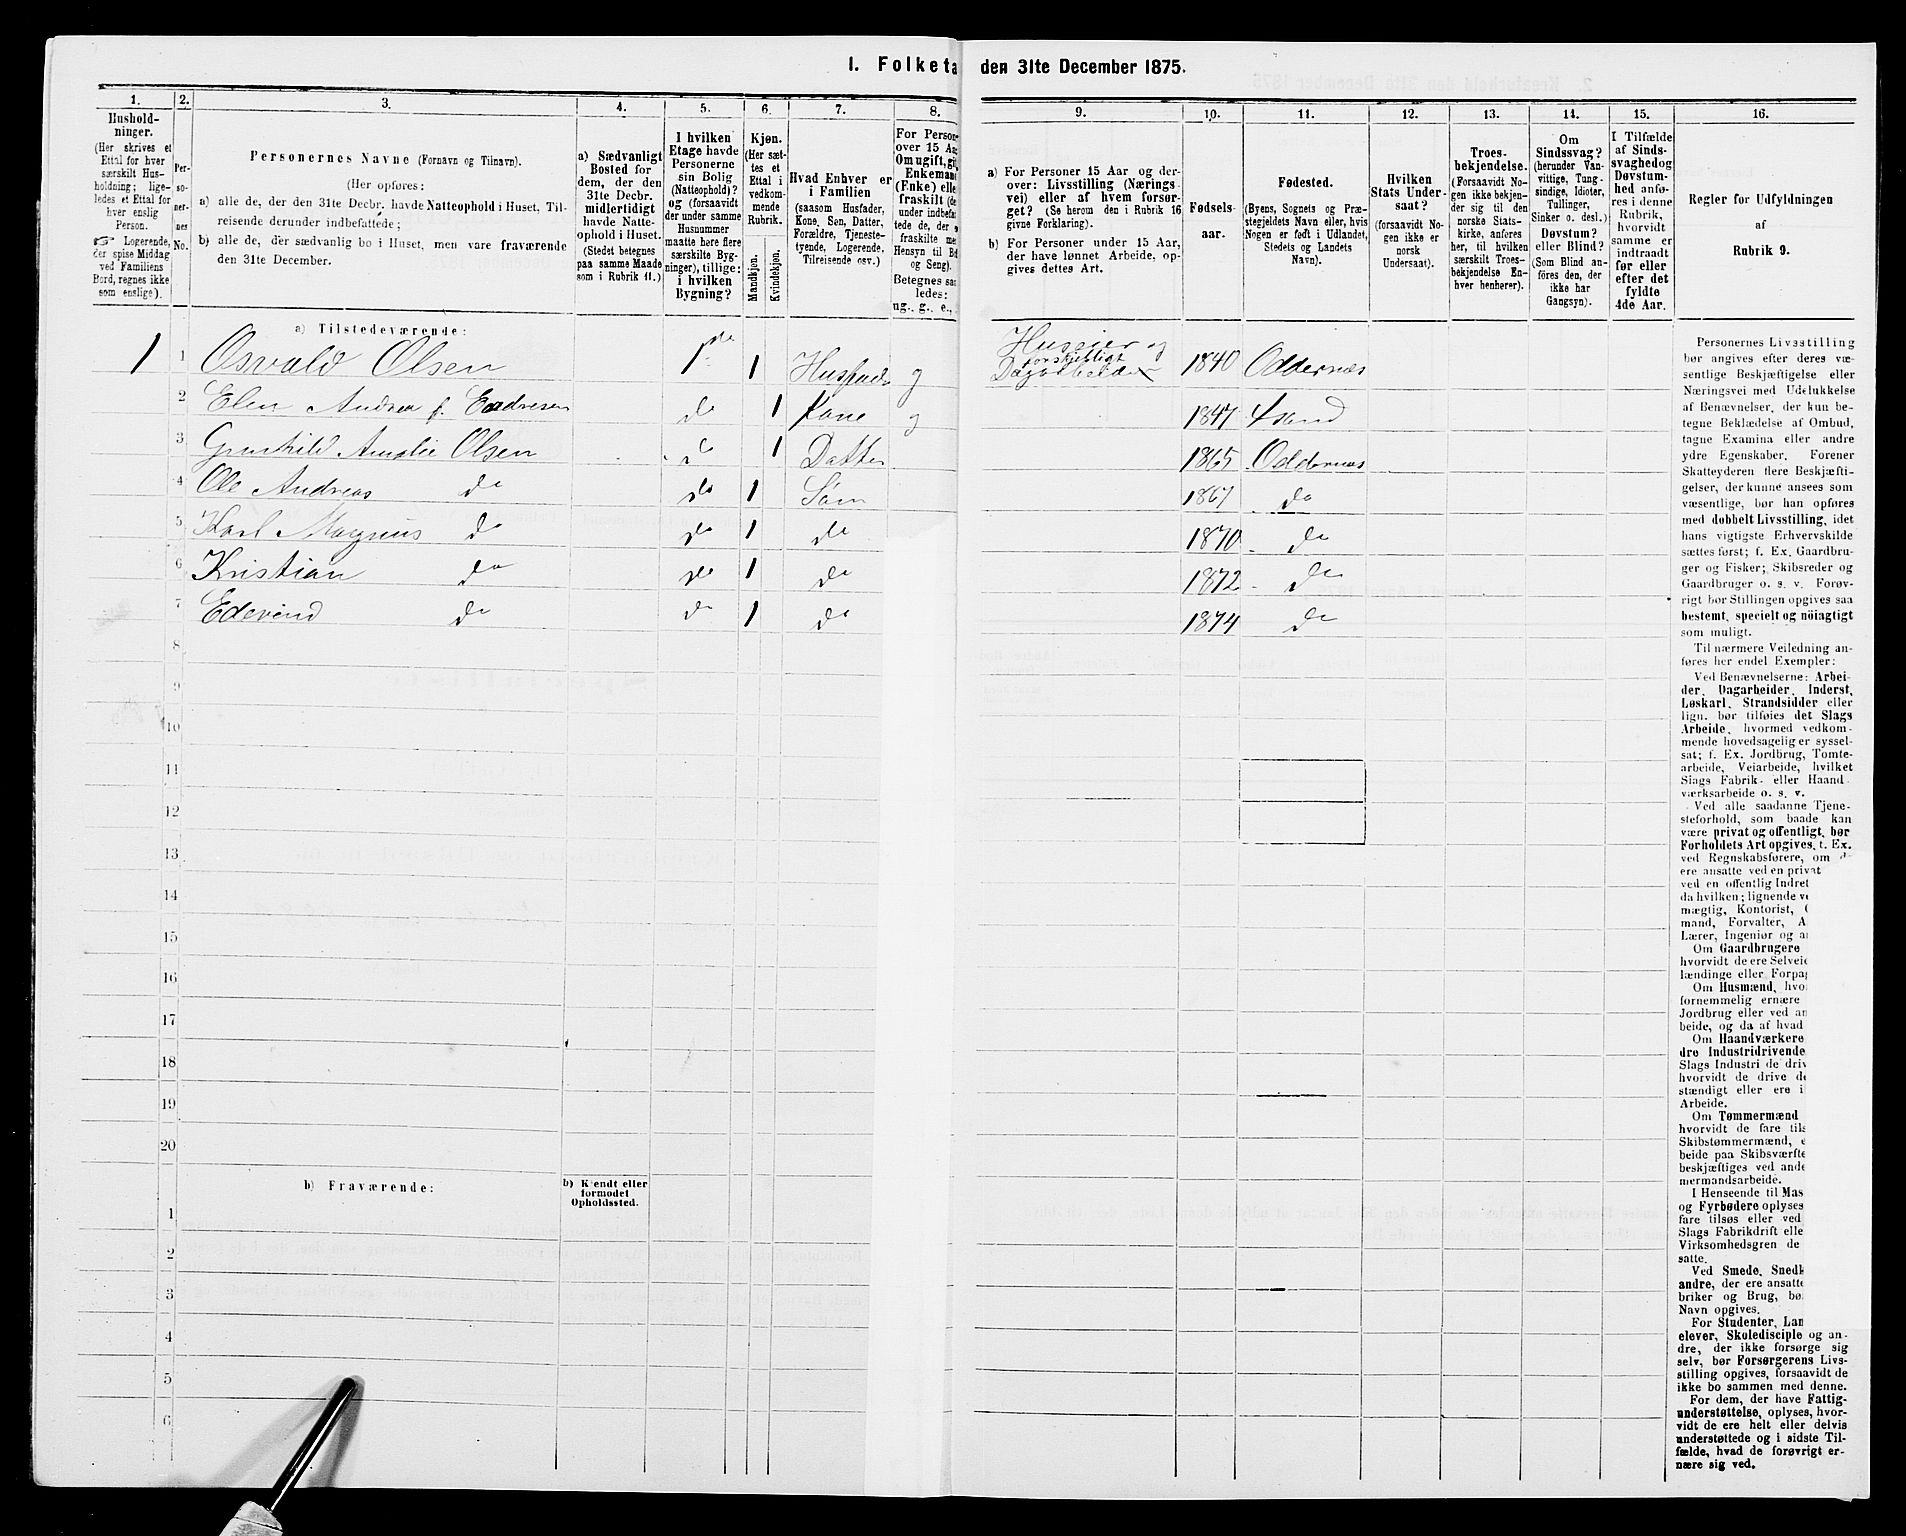 I. Folketa den 31te December 1875.
1.
Hushold-
ninger.
(Her skrives et
Ettal for hver
særskilt Hus-
holdning; lige-
ledes et Ettal for
hver enslig
Person.
☞ Logerende,
der spise Middag
ved Familiens
Bord, regnes ikke
som enslige).
2.
Per-
so-
ner-
nes
No.
3.
Personernes Navne (Fornavn og Tilnavn).
(Her opføres:
a) alle de, der den 31te Decbr. havde Natteophold i Huset, Til-
reisende derunder indbefattede;
b) alle de, der sædvanlig bo i Huset, men vare fraværende
den 31te December.
4.
a) Sædvanligt
Bosted for
dem, der den
31te Decbr.
midlertidigt
havde Natte-
ophold i Huset.
(Stedet betegnes
paa samme Maade
som i Rubrik 11.)
5.
I hvilken
Etage havde
Personerne
sin Bolig
(Natteophold)?
og (forsaavidt
der under samme
Husnummer
maatte høre flere
særskilte Byg-
ninger), tillige:
i hvilken
Bygning?
6.
Kjøn.
(Her sæt-
tes et
Ettal i
vedkom-
mende
Rubrik.
Mandkjøn.
Kvindekjøn.
7.
Hvad Enhver er
i Familien
(saasom Husfader,
Kone, Søn, Datter,
Forældre, Tjeneste-
tyende, Logerende,
Tilreisende osv.)
8.
For Person
over 15 Aa
Om ugift, gi
Enkeman
(Enke) elle
fraskilt (de
under indbefa
tede de, der s
fraskilte me
Hensyn til Bo
og Seng).
Betegnes saa
ledes:
ug., g., e.,
9.
a) For Personer 15 Aar og der-
over: Livsstilling (Nærings-
vei) eller af hvem forsør-
get? (Se herom den i Rubrik 16
givne Forklaring).
b) For Personer under 15 Aar,
der have lønnet Arbeide, op-
gives dettes Art.
10.
Fødsels-
aar.
11.
Fødested.
(Byens, Sognets og Præ-
stegjeldets Navn eller, hvis
Nogen er født i Udlandet,
Stedets og Landets
Navn).
12.
Hvilken
Stats Under-
saat?
(forsaavidt No-
gen ikke er
norsk
Undersaat).
13.
Troes-
bekjendelse.
(Forsaavidt No-
gen ikke bekjen-
der sig til den
norske Stats-
kirke, anføres
her, til hvilken
særskilt Troes-
bekjendelse En-
hver henhører).
14.
Om
Sindssvag?
(herunder Van-
vittige, Tung-
sindige, Idioter,
Tullinger,
Sinker o. desl.)
Døvstum?
eller Blind?
(Som Blind an-
føres den, der
ikke har
Gangsyn).
15.
I Tilfælde
af Sinds-
svaghed og
Døvstum-
hed anfø-
res i denne
Rubrik,
hvorvidt
samme er
indtraadt
før eller
efter det
fyldte
4de Aar.
16.
Regler for Udfyldningen
af
Rubrik 9.
a) Tilstedeværende:
1 1 Osvald Olsen 1ste 1 Husfader g Huseier og forskjelligt Dagarbeider 1840 Oddernæs
2 Elen Andrea f. Endresen do 1 Kone g 1847
3 Gunhild Amalie Olsen do 1 Datter 1865 Oddernæs
4 Ole Andreas do do 1 Søn 1867 do
5 Karl Magnus do do 1 do 1870 do
6 Kristian do do 1 do 1872 do
7 Edevind do do 1 do 1874 do
8
9
10
11
12
13
14
15
16
17
18
19
20
b) Fraværende:
b) Kjendt eller
formodet
Opholdssted.
1
2
3
4
5
6
Personernes Livsstilling
bør angives efter deres væ-
sentlige Beskjæftigelse eller
Næringsvei med Udelukkelse
af Benævnelser, der kun be-
tegne Beklædelse af Ombud,
tagne Examina eller andre
ydre Egenskaber. Forener
Skatteyderen flere Beskjæfti-
gelser, der kunne ansees som
væsentlige, bør han opføres
med dobbelt Livsstilling, idet
hans vigtigste Erhvervskilde
sættes først; f. Ex. Gaardbru-
ger og Fisker; Skibsreder og
Gaardbruger o. s. v. Forøv-
rigt bør Stillingen opgives saa
bestemt, specielt og nøiagtigt
som muligt.
Til nærmere Veiledning an-
føres her endel Exempler:
Ved Benævnelserne: Arbei-
der, Dagarbeider, Inderst,
Løskarl, Strandsidder eller
lign. bør tilføies det Slags
Arbeide, hvormed vedkom-
mende hovedsagelig er syssel-
sat; f. Ex. Jordbrug, Tomte-
arbeide, Veiarbeide, hvilket
Slags Fabrik- eller Haand-
værksarbeide o. s. v.
Ved alle saadanne Tjene-
steforhold, som baade kan
være privat og offentligt, bør
Forholdets Art opgives, f. Ex.
ved Regnskabsførere, om d
ere ansatte ved en privat
ved en offentlig Indret
da hvilken; lignende ve
mægtig, Kontorist,
mand, Forvalter, A
Lærer, Ingeniør og a
Om Gaardbrugere
hvorvidt de ere Selveie
lændinge eller Forpa
Om Husmænd, hvo
fornemmelig ernære
Jordbrug eller ved an
beide, og da af hvad
Om Haandværkere
dre Industridrivende
Slags Industri de driv
hvorvidt de drive de
stændigt eller ere i
Arbeide.
Om Tømmermænd
hvorvidt de fare tils
Skibstømmermænd, e
beide paa Skibsværfte
beskjæftiges ved ande
mermandsarbeide.
I Henseende til Mas
og Fyrbødere oplyses
fare tilsøs eller ved
Slags Fabrikdrift elle
Virksomhedsgren de
satte.
Ved Smede, Snedk
andre, der ere ansatte
briker og Brug, bø
Navn opgives.
For Studenter, Lan
elever, Skoledisciple og an-
dre, der ikke forsørge sig
selv, bør Forsørgerens Livs-
stilling opgives, forsaavidt de
ikke bo sammen med denne.
For dem, der have Fattig-
understøttelse, oplyses, hvor-
vidt de ere helt eller delvis
understøttede og i sidste Til-
fælde, hvad de forøvrigt er-
nære sig ved.